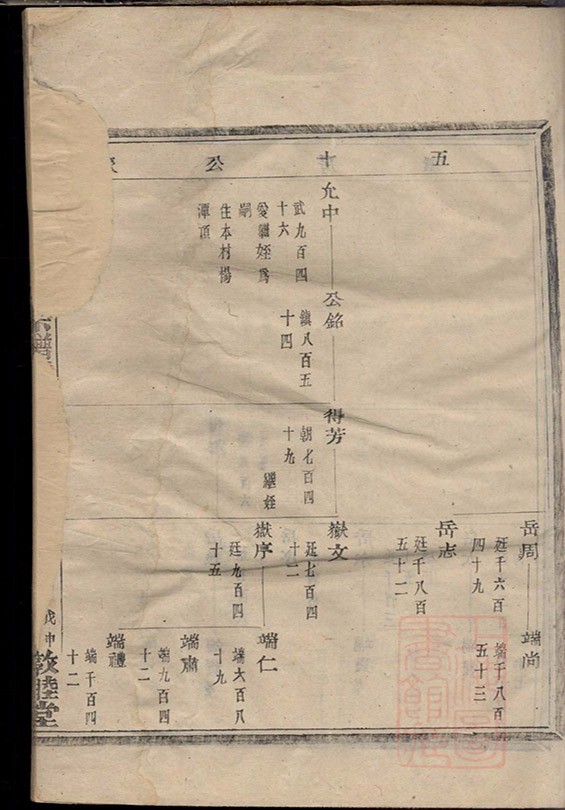 五十公
允中
武九百四
十六
愛繼姪為
嗣
住本村楊
潭頂
公銘
鎮八百五
十四
得芳
朝七百四
十九
繼姪
岳周
廷千六百
四十九
端尚
端千八百
五十三
岳志
廷千八百
五十二
嶽文
廷七百四
十二
嶽序
廷九百四
十五
端仁
端六百八
十九
端肅
端九百四
十二
端禮
端千百四
十二
宗譜
戊申
敦睦堂